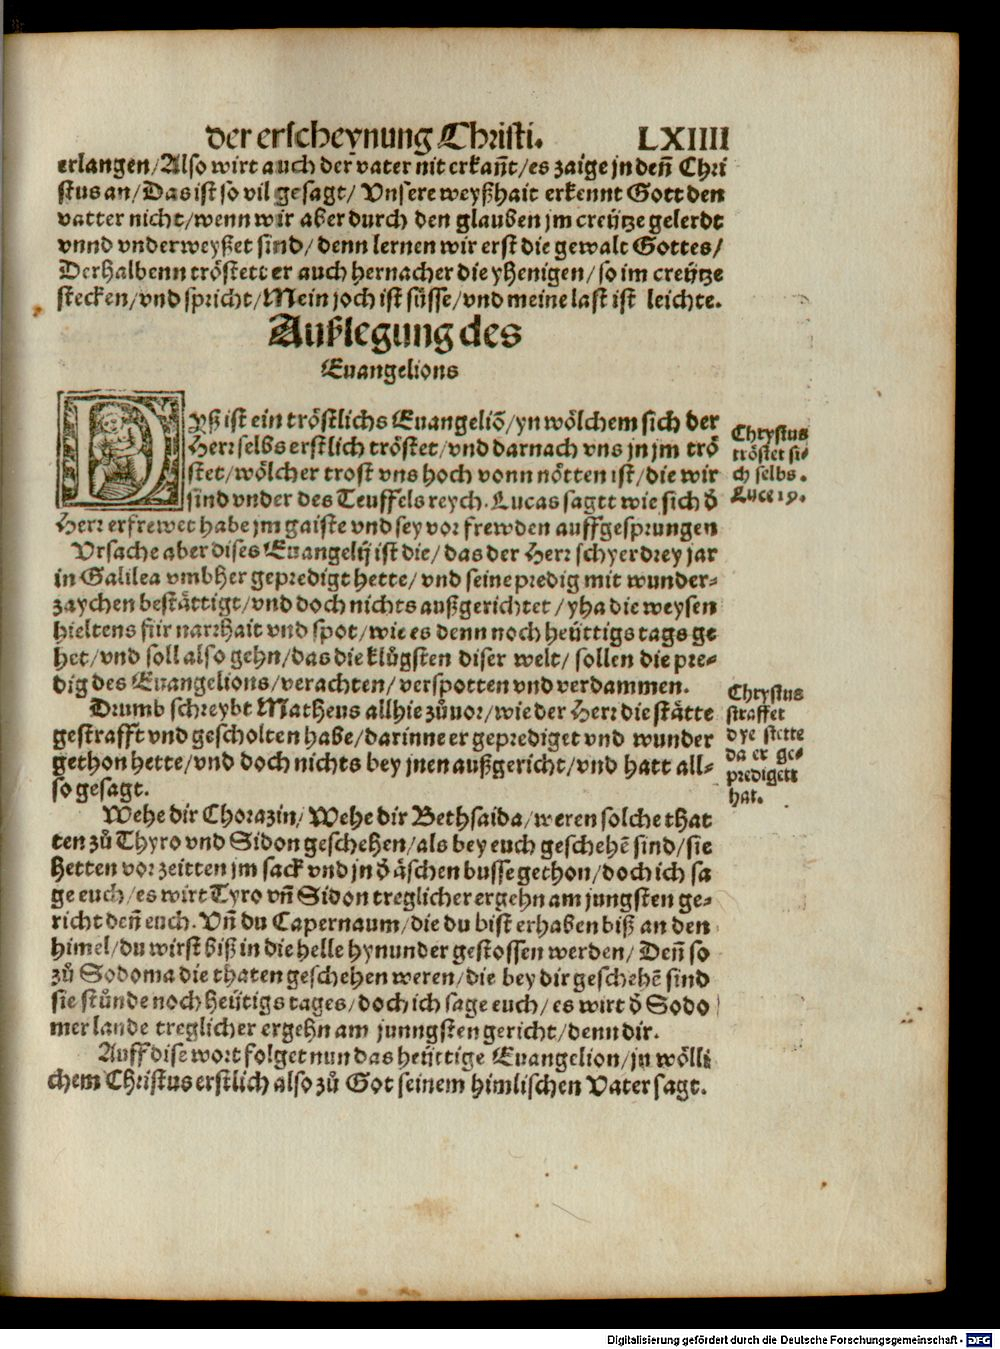 der erscheynung Christi. LXIIII
erlangen/Also wirt auch der vater nit erkañt/es zaige jn deñ Chri
stus an/Das ist so vil gesagt/ Vnsere weyßhait erkennt Gott den
vatter nicht/wenn wir aber durch den glauben jm creütze gelerdt
vnnd vnderweyßet sind/ denn lernen wir erst die gewalt Gottes/
Derhalbenn tröstett er auch hernacher die yhenigen/so im creütze
stecken/vnd spricht/Mein joch ist süsse/vnd meine last ist leichte.
Außlegung des
Euangelions
DYß ist ein tröstlichs Euangeliõ/yn wölchem sich der
Herr selbs erstlich tröstet/vnd darnach vns jn jm trö
stet/wölcher trost vns hoch vonn nötten ist/die wir
sind vnder des Teuffels reych. Lucas sagtt wie sich ð
Herr erfrewet habe jm gaiste vnd sey vor frewden auffgesprungen
Chrystus
tröstet si-
ch selbs.
Luce 19.
Vrsache aber dises Euangelij ist die/das der Herr schyer drey jar
in Galilea vmbher gepredigt hette/vnd seine predig mit wunder-
zaychen bestättigt/vnd doch nichts außgerichtet/yha die weysen
hieltens für narrhait vnd spot/wie es denn noch heüttigs tags ge
het/vnd soll also gehn/das die klůgsten diser welt/ sollen die pre-
dig des Euangelions/verachten/verspotten vnd verdammen.
Drumb schreybt Matheus allhie zůuor/wie der Herr die stätte
gestrafft vnd gescholten habe/darinne er geprediget vnd wunder
gethon hette/vnd doch nichts bey jnen außgericht/vnd hatt all-
so gesagt.
Chrystus
straffet
dye stette
da er ge-
predigett
hat.
Wehe dir Chorazin/Wehe dir Bethsaida/weren solche that
ten zů Thyro vnd Sidon geschehen/als bey euch geschehẽ sind/sie
hetten vorzeitten jm sack vnd jn ð äschen busse gethon/doch ich sa
ge euch/es wirt Tyro vñ Sidon treglicher ergehn am jungsten ge-
richt deñ euch. Vñ du Capernaum/die du bist erhaben biß an den
himel/du wirst biß in die helle hynunder gestossen werden/Deñ so
zů Sodoma die thaten geschehen weren/die bey dir geschehẽ sind
sie stůnde noch heütigs tages/doch ich sage euch/es wirt ð Sodo
mer lande treglicher ergehn am junngsten gericht/denn dir.
Auff dise wort folget nun das heüttige Euangelion/jn wölli
chem Christus erstlich also zů Got seinem himlischen Vater sagt.
Digitalisierung gefördert durch die Deutsche Forschungsgemeinschaft - DFG